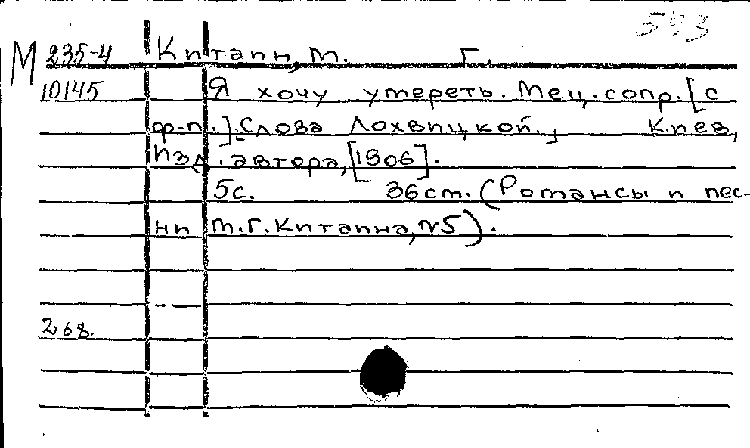 543
М 235-4 Китаин, М. Г.
10145 Я хочу умереть. Мец.-сопр. [с
ф-п.]. Слова Лохвицкой., Киев,
Изд. автора, [1906].
5с. 36см. (Романсы и пес-
ни М.Г. Китаина, №5).
268.